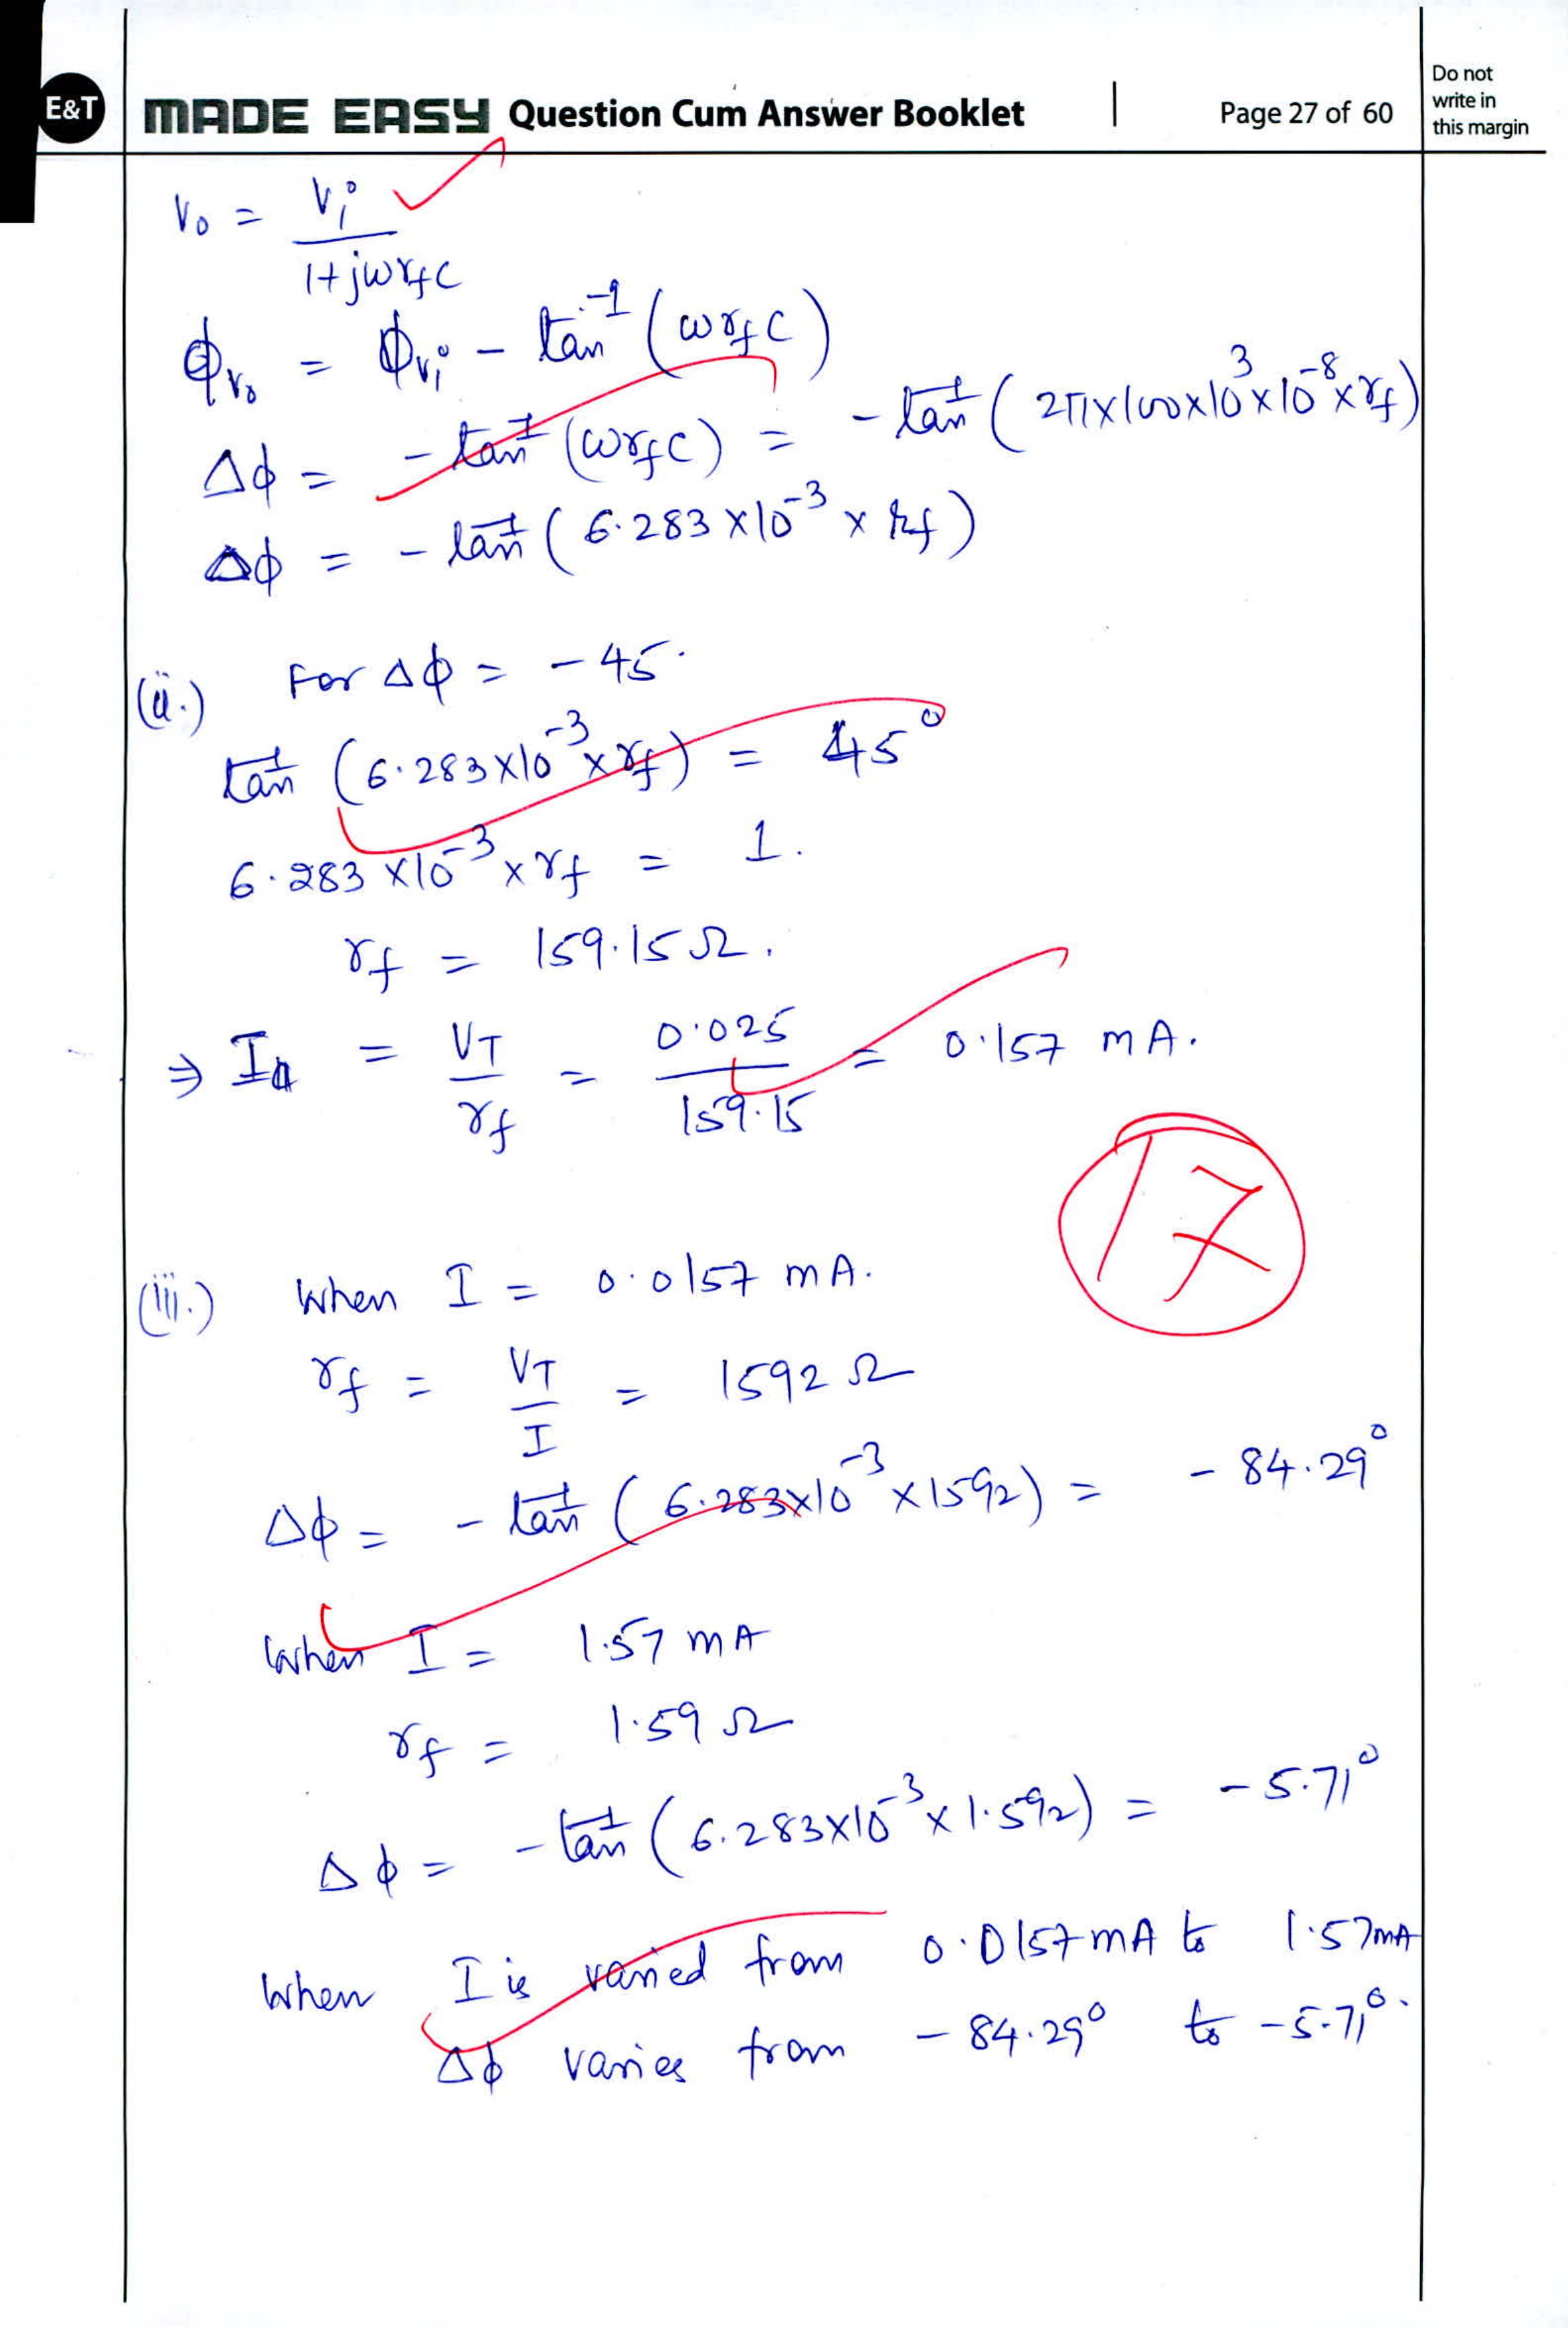 E&T
MADE EASY Question Cum Answer Booklet | Page 27 of 60
Do not
write in
this margin
V₀ = Vi / (1+jωr_fC)
Φ_V₀ = Φ_Vi − tan⁻¹(ωr_fC)
Δϕ = −tan⁻¹(ωr_fC) = −tan⁻¹(2π×100×10³×10⁻⁸×r_f)
Δϕ = −tan⁻¹(6.283×10⁻³×r_f)
(ii.) For Δϕ = −45.
tan⁻¹(6.283×10⁻³×r_f) = 45°
6.283×10⁻³×r_f = 1.
r_f = 159.15Ω.
⇒ I = V_T / r_f = 0.025 / 159.15 = 0.157 mA.
17
(iii.) When I = 0.0157 mA.
r_f = V_T / I = 1592 Ω
Δϕ = −tan⁻¹(6.283×10⁻³×1592) = −84.29°
When I = 1.57 mA
r_f = 1.59 Ω
Δϕ = −tan⁻¹(6.283×10⁻³×1.592) = −5.71°
When I is varied from 0.0157mA to 1.57mA
Δϕ varies from −84.29° to −5.71°.